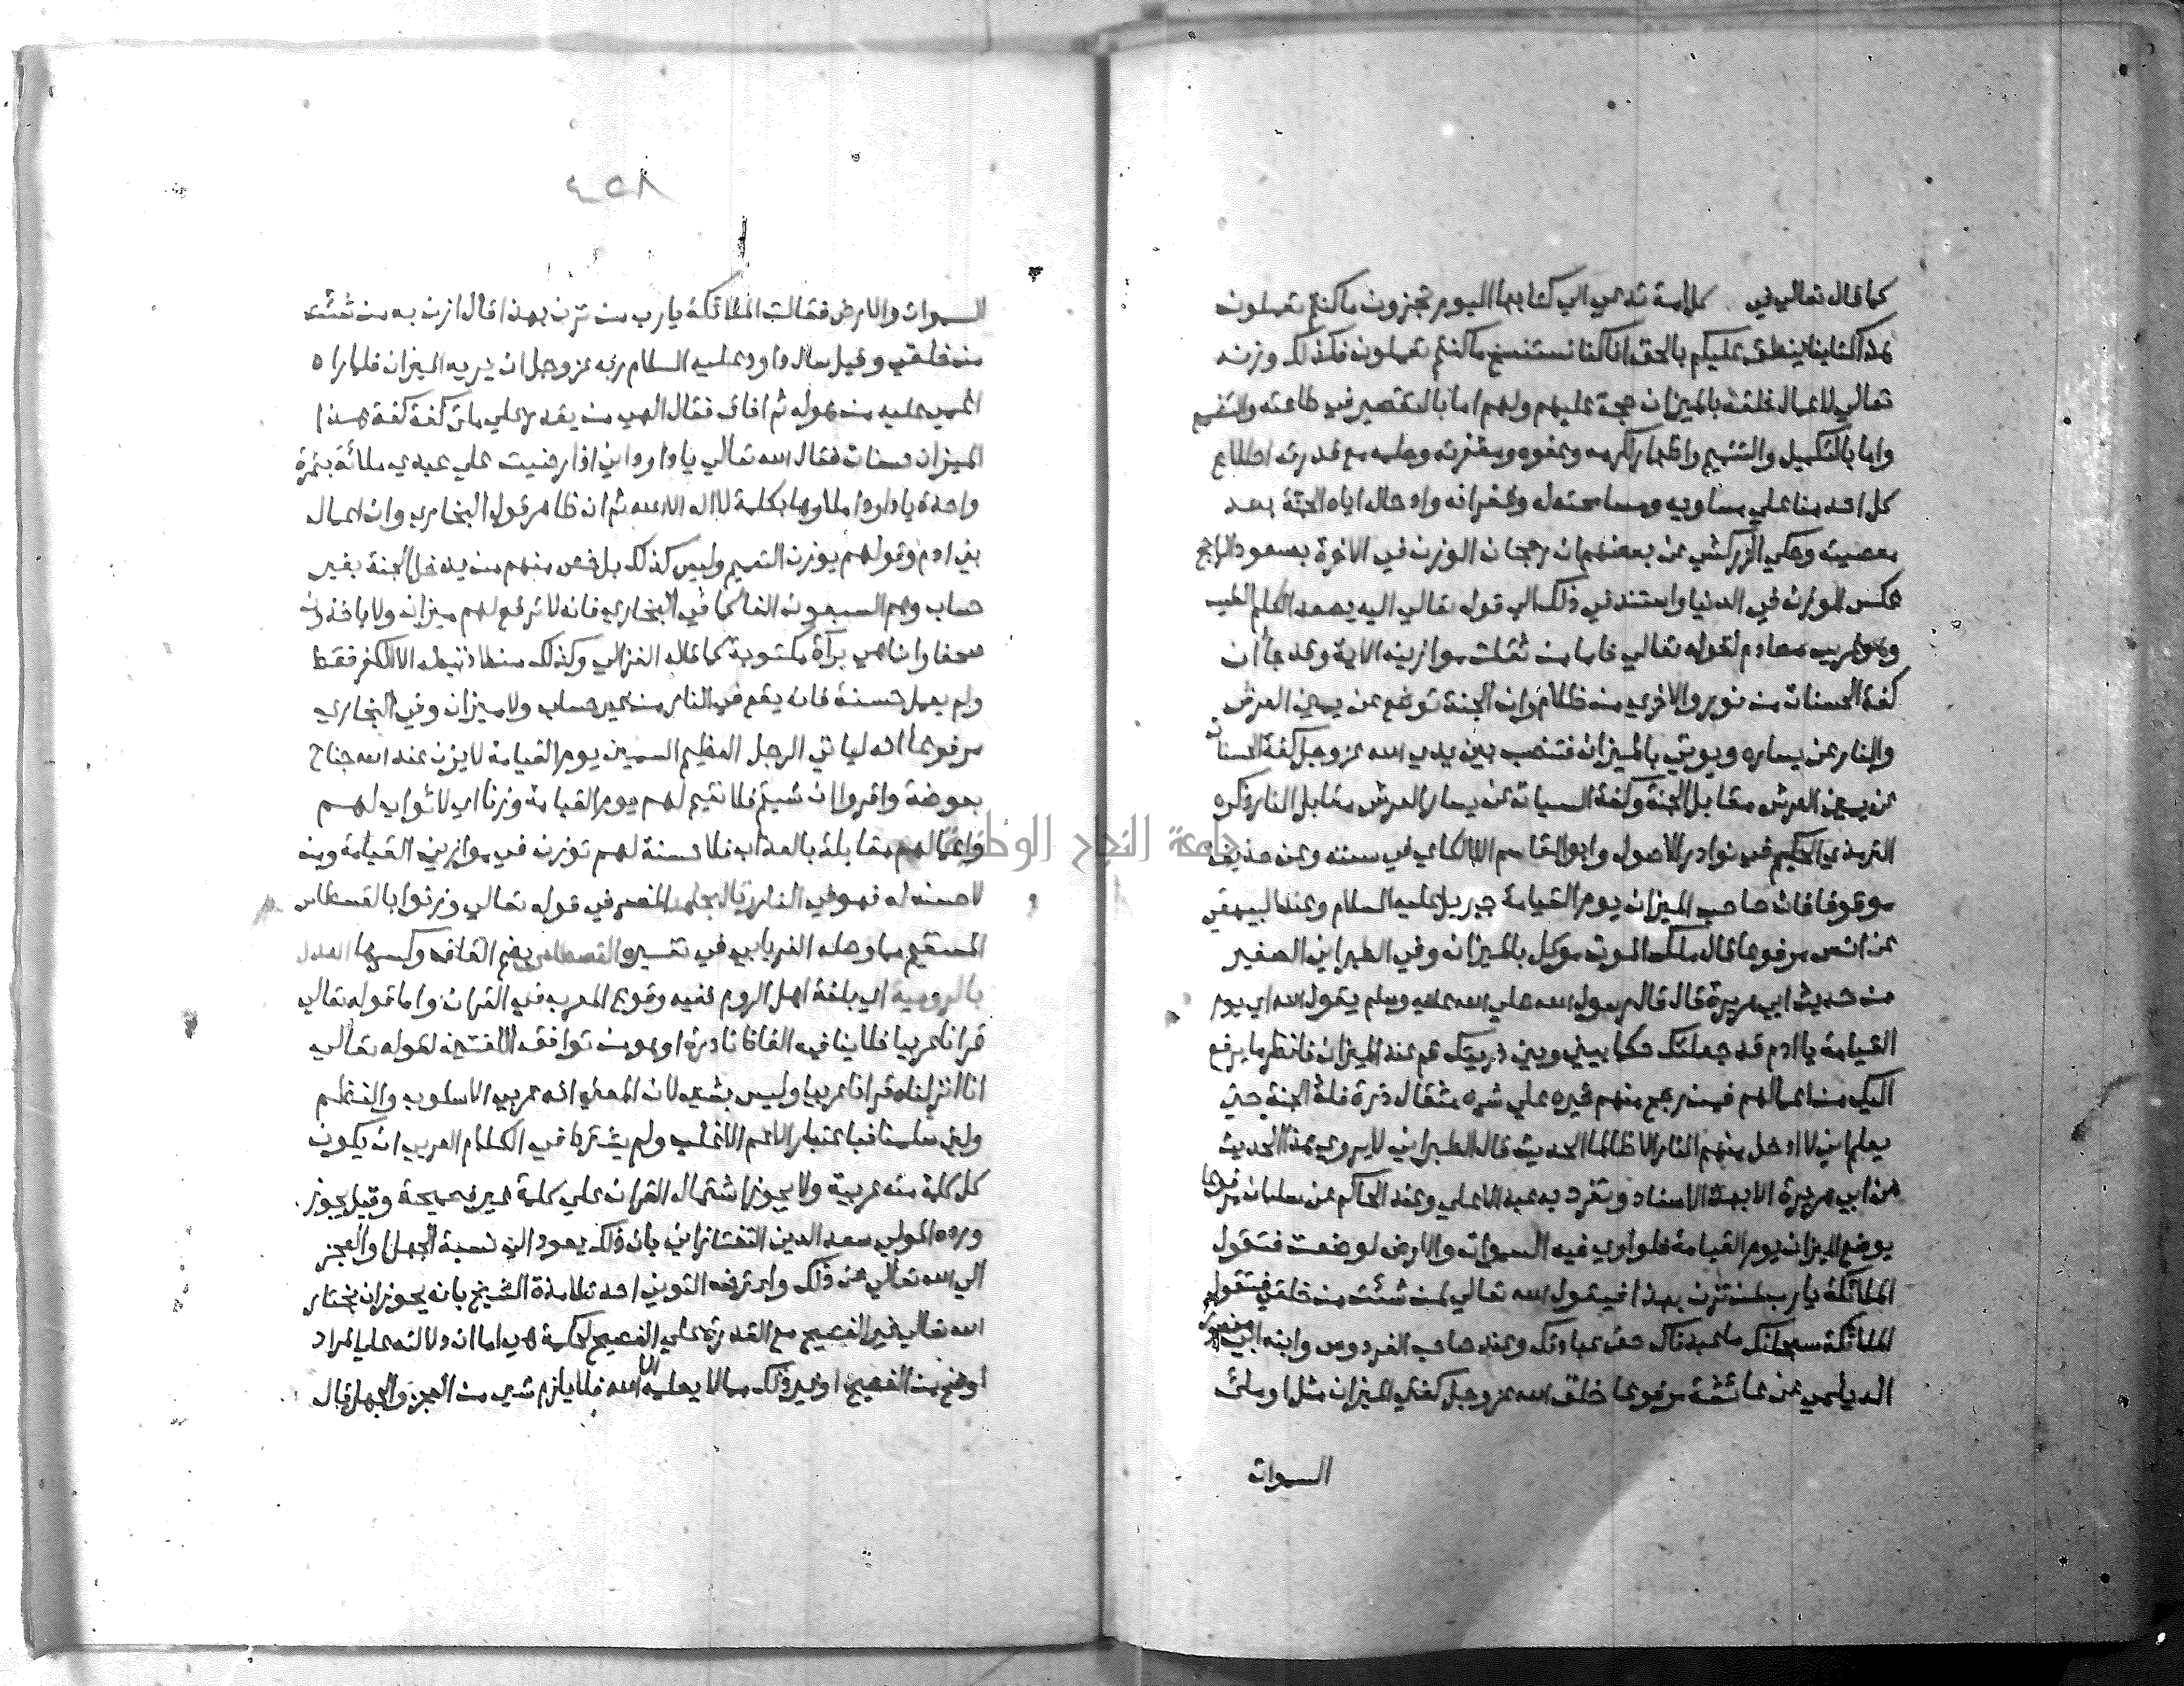 كما قال تعالي في كل امة تدعي الي كتابها اليوم تجزون ما كنتم تعملون
هذا كتابنا ينطق عليكم بالحق انا كنا نستنسخ ما كنتم تعملون فكذلك وزنه
تعالي لاعمال خلقه بالميزان حجة عليهم ولهم اما بالتقصير في طاعته والتضييع
واما بالتكميل والتتميم واظهار الكرمه وعفوه ومغفرته وحلمه مع قدرته اطلاع
كل احد منا علي مساويه ومسامحته له وغفرانه وادخاله اياه الجنة بعد
معصيته وحكي الزركشي عن بعضهم ان رجحان الوزن في الاخرة بصعود الراجح
عكس الوزن في الدنيا واستند في ذلك الي قوله تعالي اليه يصعد الكلم الطيب
وهو غريب مصادم لقوله تعالي فاما من ثقلت موازينه الاية وعند جا ان
كفة الحسنات من نور والاخري من ظلام وان الجنة توضع عن يمين العرش
والنار عن يساره ويوتي بالميزان فتنصب بين يدي الله عز وجل كفة الحسنات
عن يمين العرش مقابل الجنة وكفة السيات عن يسار العرش مقابل النار ذكره
الترمذي الحكيم في نوادر الاصول وابو القاسم اللالكائي في سننه وعن حذيفة
موقوفا فان صاحب الميزان يوم القيامة جبريل عليه السلام وعند البيهقي
عن انس مرفوعا قال ملك الموت موكل بالميزان وفي الطبراني الصغير
من حديث ابي هريرة قال قال رسول الله صلي الله عليه وسلم يقول الله اي يوم
القيامة يا ادم قد جعلتك حكما بيني وبين ذريتك قم عند الميزان فانظر ما يرفع
اليك من اعمالهم فمن رجح منهم خيره علي شره مثقال ذرة فله الجنة حتي
يعلم اني لا ادخل منهم النار الا ظالما الحديث قال الطبراني لا يروي هذا الحديث
عن ابي هريرة الا بهذا الاسناد وتفرد به عبد الاعلي وعند الحاكم عن سلمان مرفوعا
يوضع الميزان يوم القيامة فلو اوري فيه السموات والارض لوضعت فتقول
الملائكة يارب لمن تزن بهذا فيقول الله تعالي لمن شئت من خلقي فتقول
الملائكة سبحانك ما عبدناك حق عبادتك وعند صاحب الفردوس وابنه ابي منصور
الديلمي عن عائشة مرفوعا خلق الله عز وجل كفتي الميزان مثل او ملئ
السموات
٤٥٨
السموات والارض فقالت الملائكة يارب من تزن بهذا قال ازن به من شئت
من خلقي وقيل سال داود عليه السلام ربه عز وجل ان يريه الميزان فلما راه
اغمي عليه من هوله ثم افاق فقال الهي من يقدر علي ملئ كفة كفة هذا
الميزان حسنات فقال الله تعالي يا داود اني اذا رضيت علي عبدي ملائة بتمرة
واحدة يا داود املاوها بكلمة لا اله الا الله ثم ان ظاهر قول البخاري وان اعمال
بني ادم وقولهم يوزن التعميم وليس كذلك بل خص منهم من يدخل الجنة بغير
حساب وهم السبعون الفا كما في البخاري فانه لا ترفع لهم ميزان ولا ياخذون
صحفا وانما هي براة مكتوبة كما قاله الغزالي وكذلك من لا ذنب له الا الكفر فقط
ولم يعمل حسنة فانه يقع في النار من غير حساب ولا ميزان وفي البخاري
مرفوعا انه لياتي الرجل العظيم السمين يوم القيامة لا يزن عند الله جناح
بعوضة واقروا ان شيتم فلا نقيم لهم يوم القيامة وزنا اي لا ثواب لهم
واعمالهم مقابلة بالعذاب فلا حسنة لهم توزن في موازين القيامة ومن
لا حسنه له فهو في النار قال مجاهد المفسر في قوله تعالي وزنوا بالقسطاس
المستقيم مما وصله الفريابي في تفسيره القسطاس بضم القاف وكسرها العدل
بالرومية اي بلغة اهل الروم ففيه وقوع المعرب في القران واما قوله تعالي
قرانا عربيا فلا ينافيه الفاظ نادرة او هو من توافق اللغتين لقوله تعالي
انا انزلناه قرانا عربيا وليس بشي لان المعني انه عربي الاسلوب والنظم
ولين سلمنا فباعتبار الاعم الاغلب ولم يشترط في الكلام العربي ان يكون
كل كلمة منه عربية ولا يجوز اشتمال القران علي كلمة غير فصيحة وقيل يجوز
ورده المولي سعد الدين التفتازاني بان ذلك يعود الي نسبة الجهل او العجز
الي الله تعالي عن ذلك واعترضه القونوي احد تلامذة الشيخ بانه يجوز ان يختار
الله تعالي غير الفصيح مع القدرة علي الفصيح لحكمة هي اما ان دلالته علي المراد
اوضح من الفصيح او غير ذلك مما لا يعلمه الا الله فلا يلزم شي من العجز والجهل قال